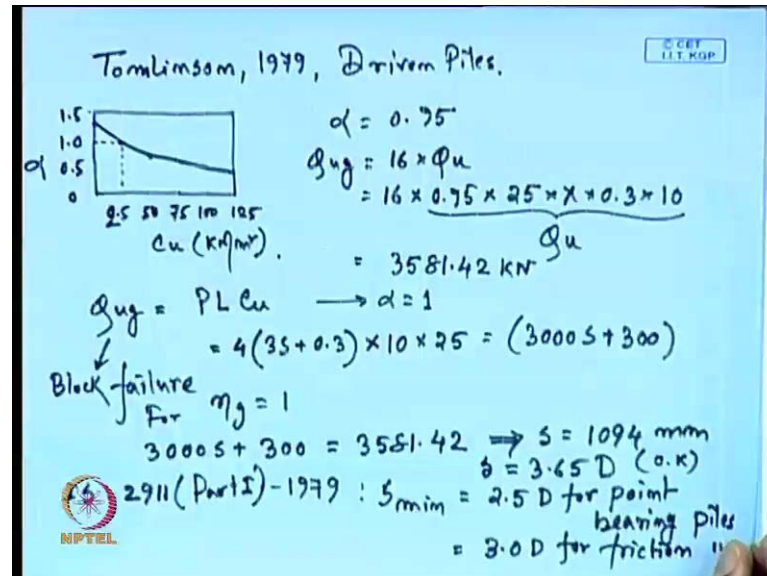 © CET
I.I.T. KGP
Tomlinson, 1979, Driven Piles.
1.5
1.0
α 0.5
0
25 50 75 100 125
Cu (KN/m²).
α = 0.95
Qug = 16 × Qu
= 16 × 0.95 × 25 × π × 0.3 × 10
Qu
= 3581.42 KN
Qug = PL Cu → α = 1
= 4(3S + 0.3) × 10 × 25 = (3000 S + 300)
Block failure
For ηg = 1
3000 S + 300 = 3581.42 ⇒ S = 1094 mm
S = 3.65 D (O.K)
2911 (Part I) - 1979 : Smin = 2.5 D for point
bearing piles
= 3.0 D for friction "
NPTEL